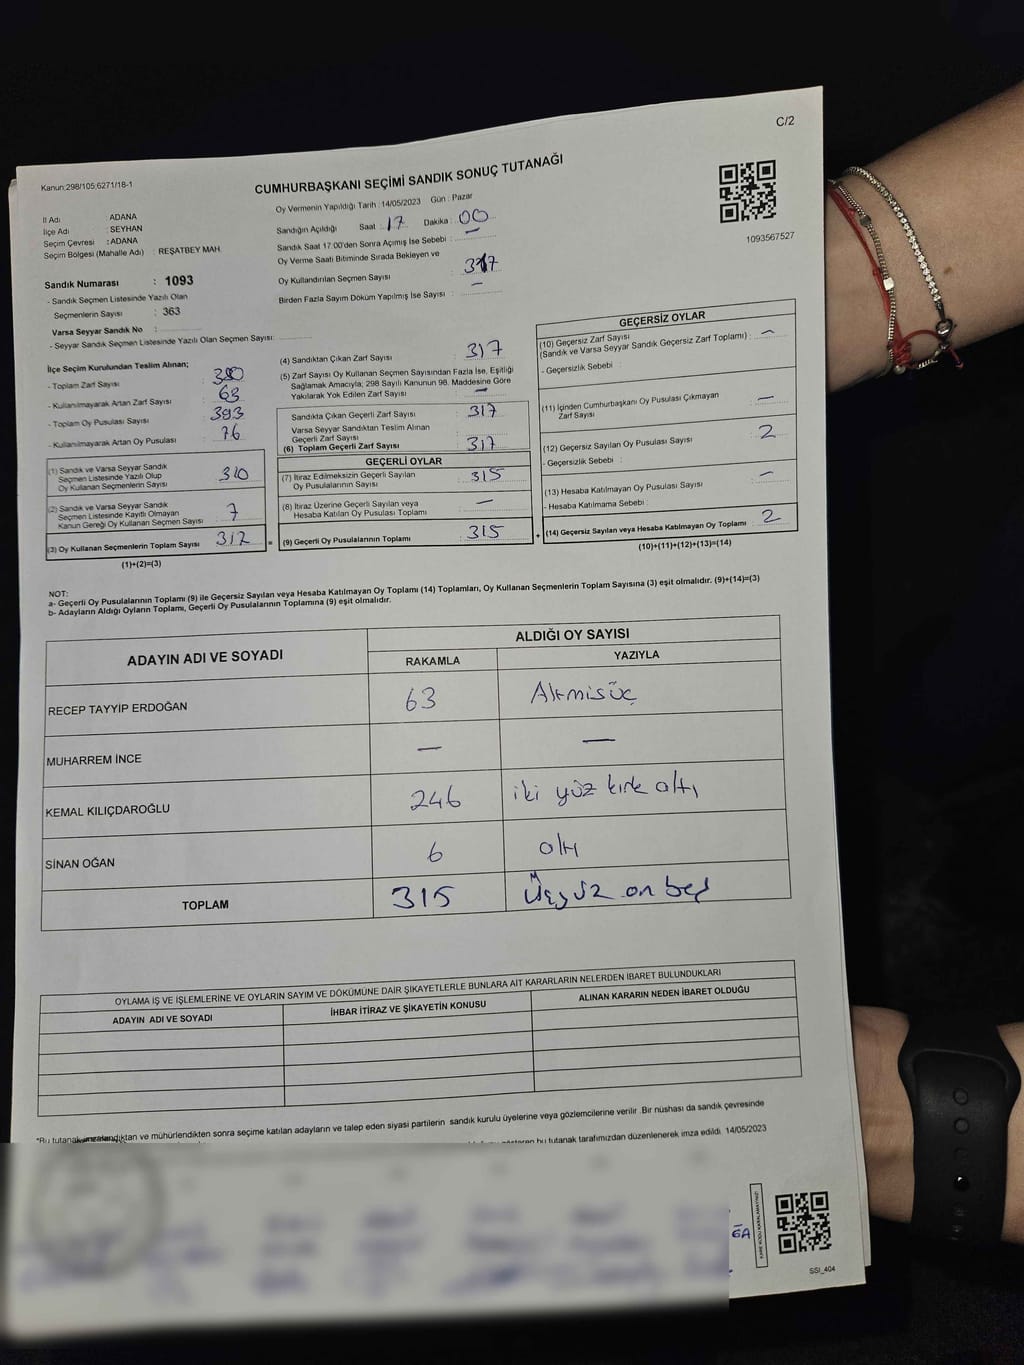 C/2
Kanun:298/105;6271/18-1
CUMHURBAŞKANI SEÇİMİ SANDIK SONUÇ TUTANAĞI
1093567527
İl Adı : ADANA
İlçe Adı : SEYHAN
Seçim Çevresi : ADANA
Seçim Bölgesi (Mahalle Adı) : REŞATBEY MAH.
Sandık Numarası : 1093
- Sandık Seçmen Listesinde Yazılı Olan
Seçmenlerin Sayısı : 363
Varsa Seyyar Sandık No :
- Seyyar Sandık Seçmen Listesinde Yazılı Olan Seçmen Sayısı:
Oy Vermenin Yapıldığı Tarih :14/05/2023 Gün : Pazar
Sandığın Açıldığı Saat : 17 Dakika : 00
Sandık Saat 17:00'den Sonra Açımış İse Sebebi : —
Oy Verme Saati Bitiminde Sırada Bekleyen ve
Oy Kullandırılan Seçmen Sayısı : 317
Birden Fazla Sayım Döküm Yapılmış İse Sayısı : —
İlçe Seçim Kurulundan Teslim Alınan;
- Toplam Zarf Sayısı : 380
- Kullanılmayarak Artan Zarf Sayısı : 63
- Toplam Oy Pusulası Sayısı : 393
- Kullanılmayarak Artan Oy Pusulası : 76
(1) Sandık ve Varsa Seyyar Sandık
Seçmen Listesinde Yazılı Olup
Oy Kullanan Seçmenlerin Sayısı : 310
(2) Sandık ve Varsa Seyyar Sandık
Seçmen Listesinde Kayıtlı Olmayan
Kanun Gereği Oy Kullanan Seçmen Sayısı : 7
(3) Oy Kullanan Seçmenlerin Toplam Sayısı : 317 =
(1)+(2)=(3)
(4) Sandıktan Çıkan Zarf Sayısı : 317
(5) Zarf Sayısı Oy Kullanan Seçmen Sayısından Fazla İse, Eşitliği
Sağlamak Amacıyla; 298 Sayılı Kanunun 98. Maddesine Göre
Yakılarak Yok Edilen Zarf Sayısı : —
Sandıkta Çıkan Geçerli Zarf Sayısı : 317
Varsa Seyyar Sandıktan Teslim Alınan
Geçerli Zarf Sayısı :
(6) Toplam Geçerli Zarf Sayısı : 317
GEÇERLİ OYLAR
(7) İtiraz Edilmeksizin Geçerli Sayılan
Oy Pusulalarının Sayısı : 315
(8) İtiraz Üzerine Geçerli Sayılan veya
Hesaba Katılan Oy Pusulası Toplamı : —
(9) Geçerli Oy Pusulalarının Toplamı : 315 +
GEÇERSİZ OYLAR
(10) Geçersiz Zarf Sayısı
(Sandık ve Varsa Seyyar Sandık Geçersiz Zarf Toplamı) : —
- Geçersizlik Sebebi :
(11) İçinden Cumhurbaşkanı Oy Pusulası Çıkmayan
Zarf Sayısı : —
(12) Geçersiz Sayılan Oy Pusulası Sayısı : 2
- Geçersizlik Sebebi :
(13) Hesaba Katılmayan Oy Pusulası Sayısı : —
- Hesaba Katılmama Sebebi :
(14) Geçersiz Sayılan veya Hesaba Katılmayan Oy Toplamı : 2
(10)+(11)+(12)+(13)=(14)
NOT:
a- Geçerli Oy Pusulalarının Toplamı (9) ile Geçersiz Sayılan veya Hesaba Katılmayan Oy Toplamı (14) Toplamları, Oy Kullanan Seçmenlerin Toplam Sayısına (3) eşit olmalıdır. (9)+(14)=(3)
b- Adayların Aldığı Oyların Toplamı, Geçerli Oy Pusulalarının Toplamına (9) eşit olmalıdır.
ADAYIN ADI VE SOYADI
ALDIĞI OY SAYISI
RAKAMLA YAZIYLA
RECEP TAYYİP ERDOĞAN 63 Altmisüç
MUHARREM İNCE — —
KEMAL KILIÇDAROĞLU 246 iki yüz kırk altı
SİNAN OĞAN 6 altı
TOPLAM 315 Üçyüz on beş
OYLAMA İŞ VE İŞLEMLERİNE VE OYLARIN SAYIM VE DÖKÜMÜNE DAİR ŞİKAYETLERLE BUNLARA AİT KARARLARIN NELERDEN İBARET BULUNDUKLARI
ADAYIN ADI VE SOYADI İHBAR İTİRAZ VE ŞİKAYETİN KONUSU ALINAN KARARIN NEDEN İBARET OLDUĞU
*Bu tutanak imzalandıktan ve mühürlendikten sonra seçime katılan adayların ve talep eden siyasi partilerin sandık kurulu üyelerine veya gözlemcilerine verilir .Bir nüshası da sandık çevresinde
gösteren bu tutanak tarafımızdan düzenlenerek imza edildi. 14/05/2023
SSI_404